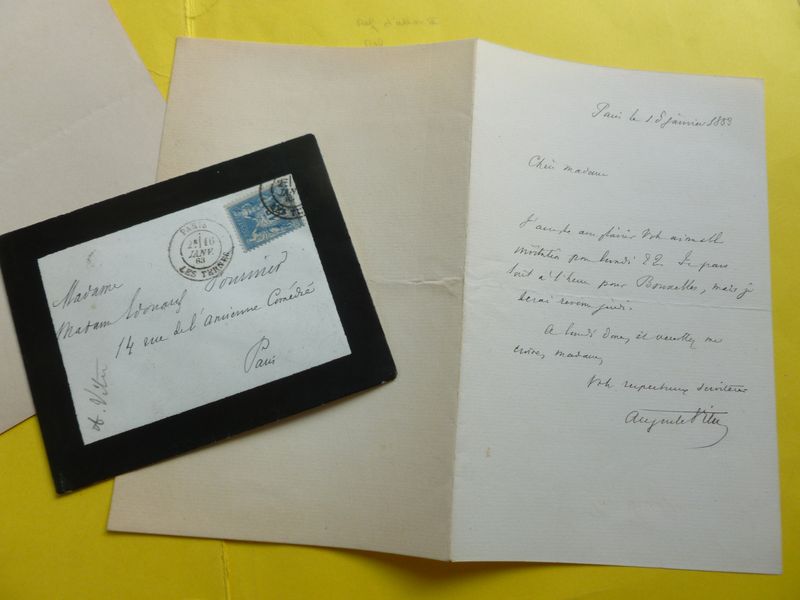 Paris le 15 janvier 1883
Chère madame
J'accepte avec plaisir votre aimable
invitation pour lundi 22. Je pars
tout à l'heure pour Bruxelles, mais je
serai revenu jeudi.
A lundi donc, et veuillez me
croire, madame,
Votre respectueux serviteur
Auguste Vitu
PARIS
16
JANV
83
LES TERNES
Madame
Madame Edouard Fournier
14 rue de l'ancienne Comédie
Paris
A. Vitu